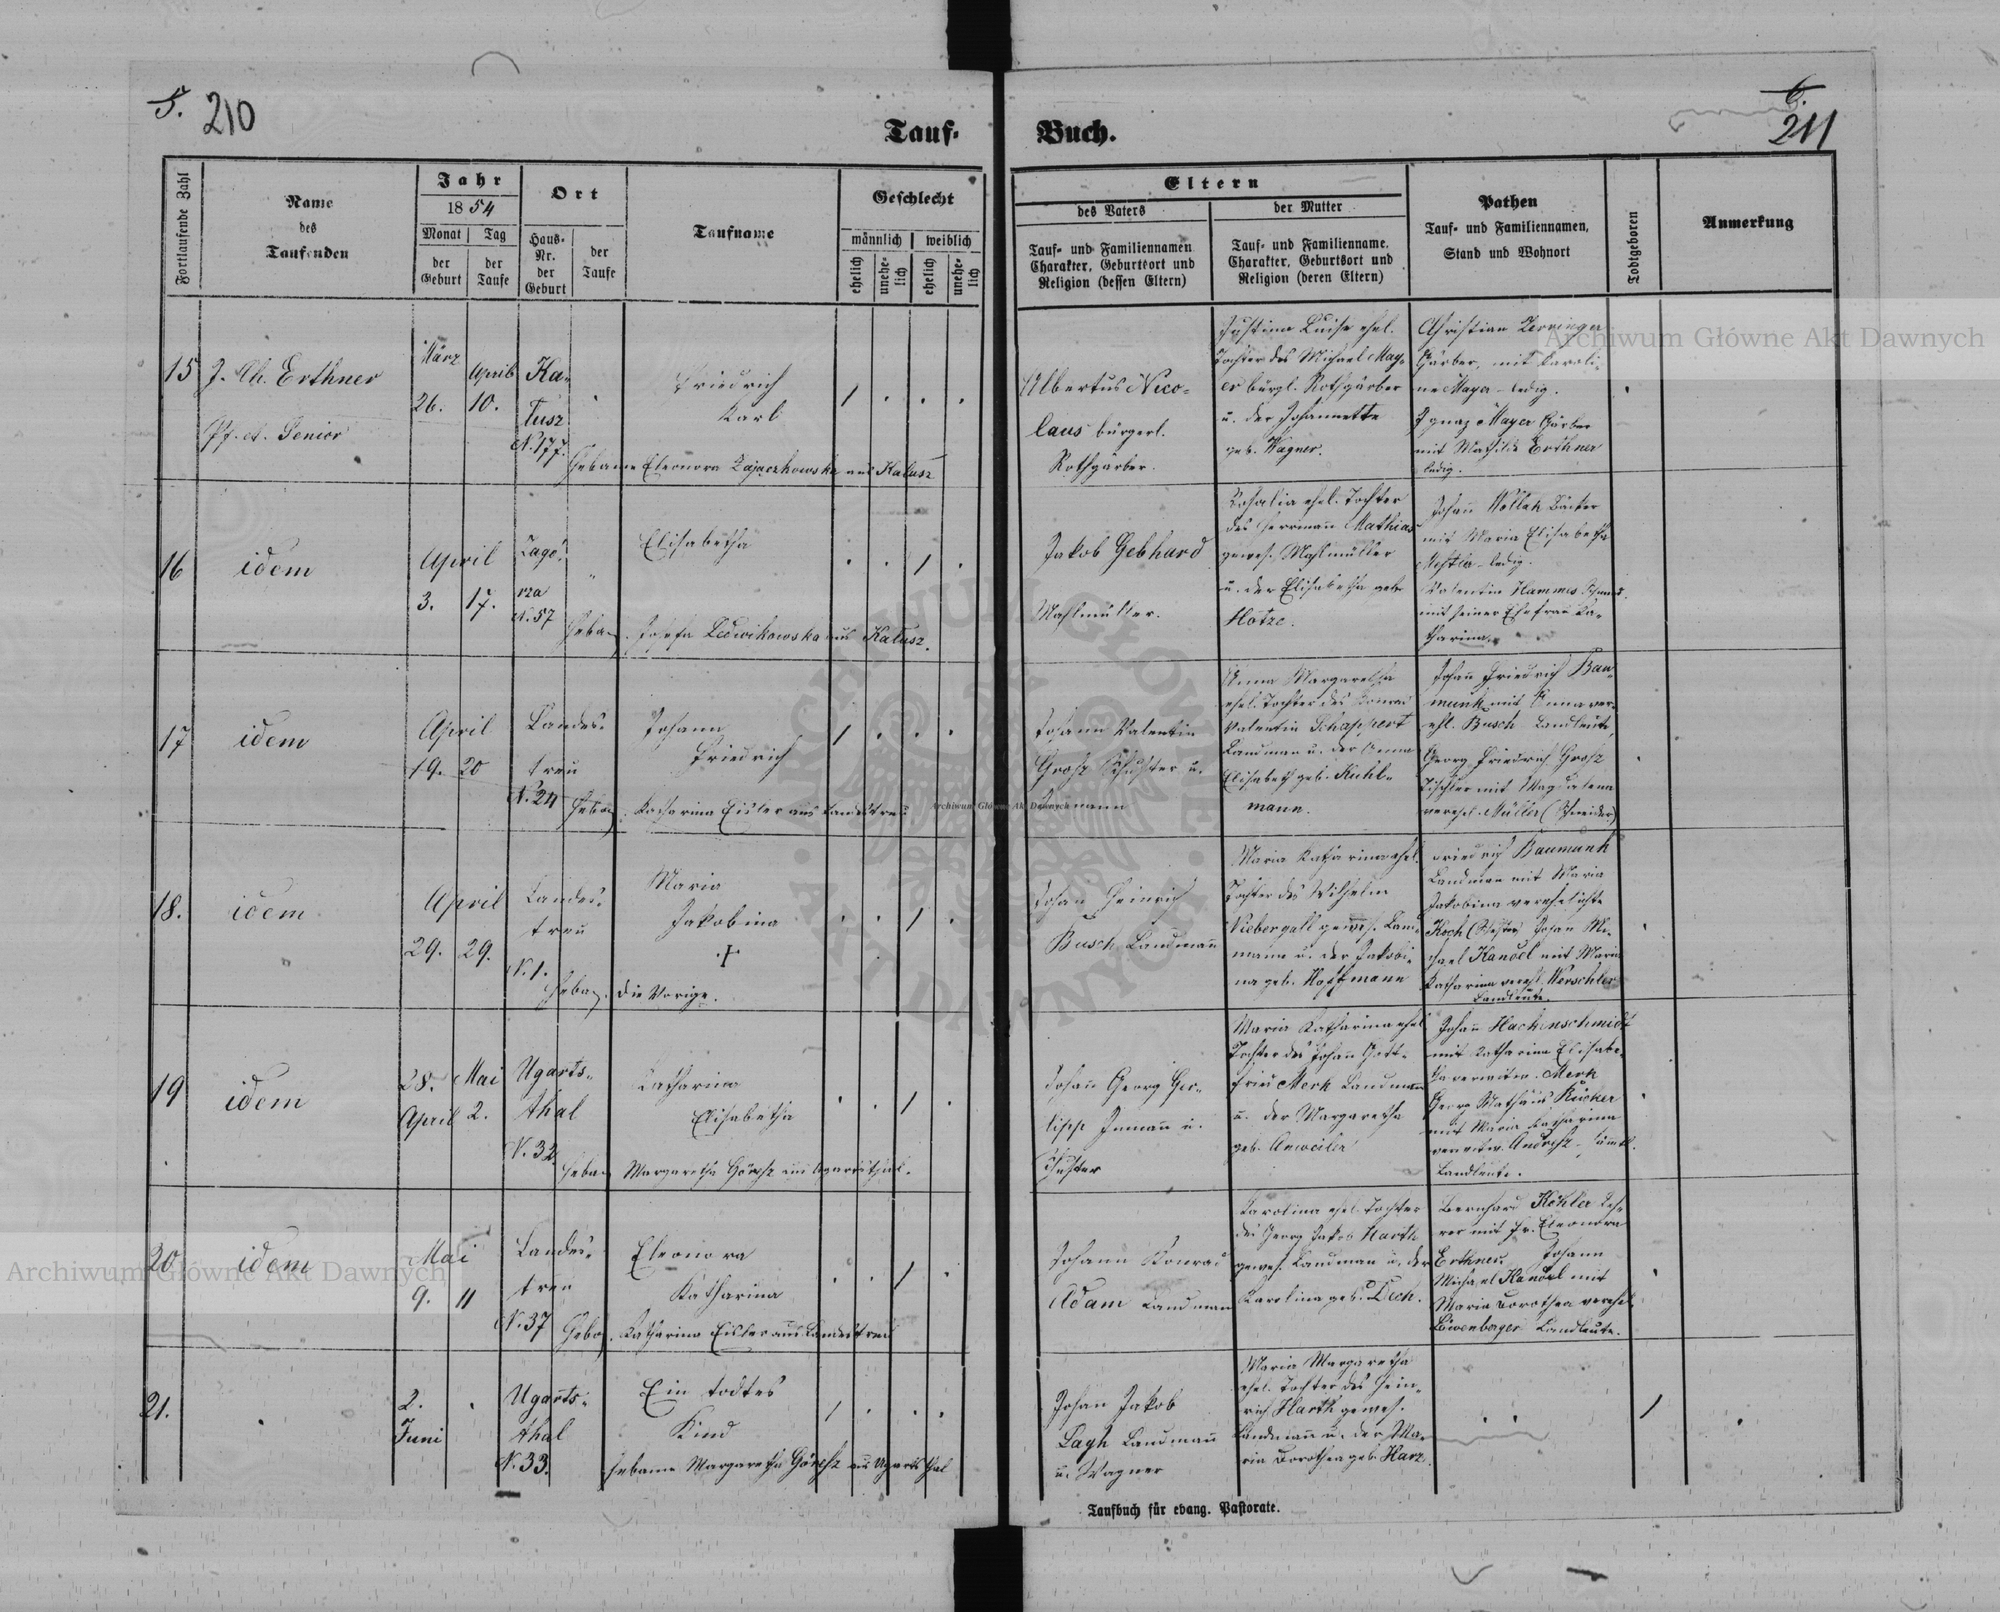 5. 210
Tauf-
Buch.
6.
211
Fortlaufende Zahl
Name
des
Taufenden
Jahr
1854
Monat
Tag
der
Geburt
der
Taufe
Ort
Haus-
Nr.
der
Geburt
der
Taufe
Taufname
Geschlecht
männlich
weiblich
ehelich
unehe-
lich
ehelich
unehe-
lich
Eltern
des Vaters
Tauf- und Familiennamen
Charakter, Geburtsort und
Religion (dessen Eltern)
der Mutter
Tauf- und Familienname,
Charakter, Geburtsort und
Religion (deren Eltern)
Pathen
Tauf- und Familiennamen,
Stand und Wohnort
Todtgeboren
Anmerkung
15
J. Ch. Erthner
Pf. et. Senior
März
26.
April
10.
Ka-
lusz
N. 177.
Friedrich
Karl
Hebame Eleonora Zajaczkowska aus Kalusz
Albertus Nico-
laus bürgerl.
Rothgärber.
Justina Luise ehel.
Tochter des Michael May-
er bürgl. Rothgärber
u. der Johannette
geb. Wagner.
Christian Zerringer
Gärber, mit Karoli-
ne Mayer ledig.
Ignaz Mayer Gärber
mit Mathilde Erthner
ledig.
16
idem
April
3. 17.
Zago-
rza
N. 57
Elisabetha
Hebam. Josefa Ledwikowska aus Kalusz.
Jakob Gebhard
Mahlmüller.
Rosalia ehel. Tochter
des Herrmann Mathias
gewes. Mahlmüller
u. der Elisabetha geb.
Hotze.
Johann Wollak Bäcker
mit Maria Elisabetha
ledig.
Valentin Hammes
mit seiner Ehefrau Ka-
tharina.
17
idem
April
19. 20
Landes-
treu
N. 24
Johann
Friedrich
Hebam. Katharina Eisler aus Landestreu
Johann Valentin
Grosz Schuster u.
Anna Margaretha
ehel. Tochter des Konrad
Valentin Schappert
Landman u. der Anna
Elisabeth geb. Kuhl-
mann.
Johann Friedrich Bau-
munk mit Anna ver-
ehl. Busch Landleute,
Georg Friedrich Grosz
Tischler mit Magdalena
verehel. Müller (Schneider)
18.
idem
April
29. 29.
Landes-
treu
N. 1.
Maria
Jakobina
+
Hebam. die Vorige.
Johan Heinrich
Busch Landmann
Maria Katharina ehel.
Tochter des Wilhelm
Niebergall gewes. Land-
mann u. der Jakobi-
na geb. Hoffmann
Friedrich Baumunk
Landman mit Maria
Jakobina verehelichte
Koch (Schuster) Johan Mi-
chael Kandel mit Maria
Katharina verehl. Werschler
Landleute.
19
idem
28.
April
Mai
2.
Ugarts-
thal
N. 32
Katharina
Elisabetha
Hebam Margaretha Görgsz aus Ugartsthal.
Johann Georg Ger-
lipp Inmann u.
Schuster
Maria Katharina ehel
Tochter des Johann Gott-
fried Merk Landmann
u. der Margaretha
geb. Anweiler
Johann Hachenschmidt
mit Katharina Elisabe-
tha verwitw. Merk
Georg Mathäus Rücker
mit Maria Katharina
verwitw. Andresz, sämtl.
Landleute.
20
idem
Mai
9. 11
Landes-
treu
N. 37
Eleonora
Katharina
Hebam. Katharina Eisler aus Landestreu
Johann Konrad
Adam Landmann
Karolina ehel. Tochter
des Georg Jakob Harth
gewes. Landman u. der
Karolina geb. Dech.
Bernhard Köhler Leh-
rer mit Fr. Eleonora
Erthner. Johann
Michael Kandel mit
Maria Dorothea verehel.
Löwenberger Landleute.
21.
2.
Juni
Ugarts-
thal
N. 33.
Ein todtes
Kind
Hebame Margaretha Görgsz aus Ugartsthal
Johan Jakob
Layh Landmann
u. Wagner
Maria Margaretha
ehel. Tochter des Hein-
rich Harth gewes.
Landmann u. der Ma-
ria Dorothea geb. Harz.
Taufbuch für evang. Pastorate.
Archiwum Główne Akt Dawnych
Archiwum Główne Akt Dawnych
Archiwum Główne Akt Dawnych
ARCHIWUM GŁÓWNE
AKT DAWNYCH